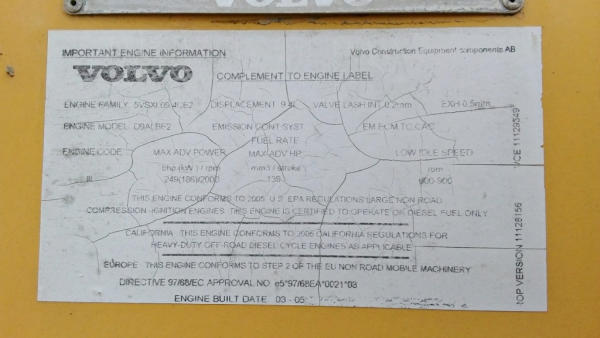 VOLVO
IMPORTANT ENGINE INFORMATION Volvo Construction Equipment components AB
VOLVO COMPLEMENT TO ENGINE LABEL
ENGINE FAMILY DISPLACEMENT 9.4L VALVE LASH INT 0.2mm EXH 0.5mm
ENGINE MODEL EMISSION CONT SYST EM ECM TC CAC
FUEL RATE
ENGINE CODE MAX ADV POWER MAX ADV HP LOW IDLE SPEED
bhp (kW) / rpm mm3 / stroke rpm
249(186)/2000 600-900
THIS ENGINE CONFORMS TO 2005 U.S. EPA REGULATIONS LARGE NON ROAD
COMPRESSION-IGNITION ENGINES. THIS ENGINE IS CERTIFIED TO OPERATE ON DIESEL FUEL ONLY
CALIFORNIA : THIS ENGINE CONFORMS TO 2005 CALIFORNIA REGULATIONS FOR
HEAVY-DUTY OFF-ROAD DIESEL CYCLE ENGINES AS APPLICABLE
EUROPE : THIS ENGINE CONFORMS TO STEP 2 OF THE EU NON ROAD MOBILE MACHINERY
DIRECTIVE 97/68/EC APPROVAL NO e5*97/68EA*0021*03
ENGINE BUILT DATE 03-05
VCE 11129549
TOP VERSION 11128156